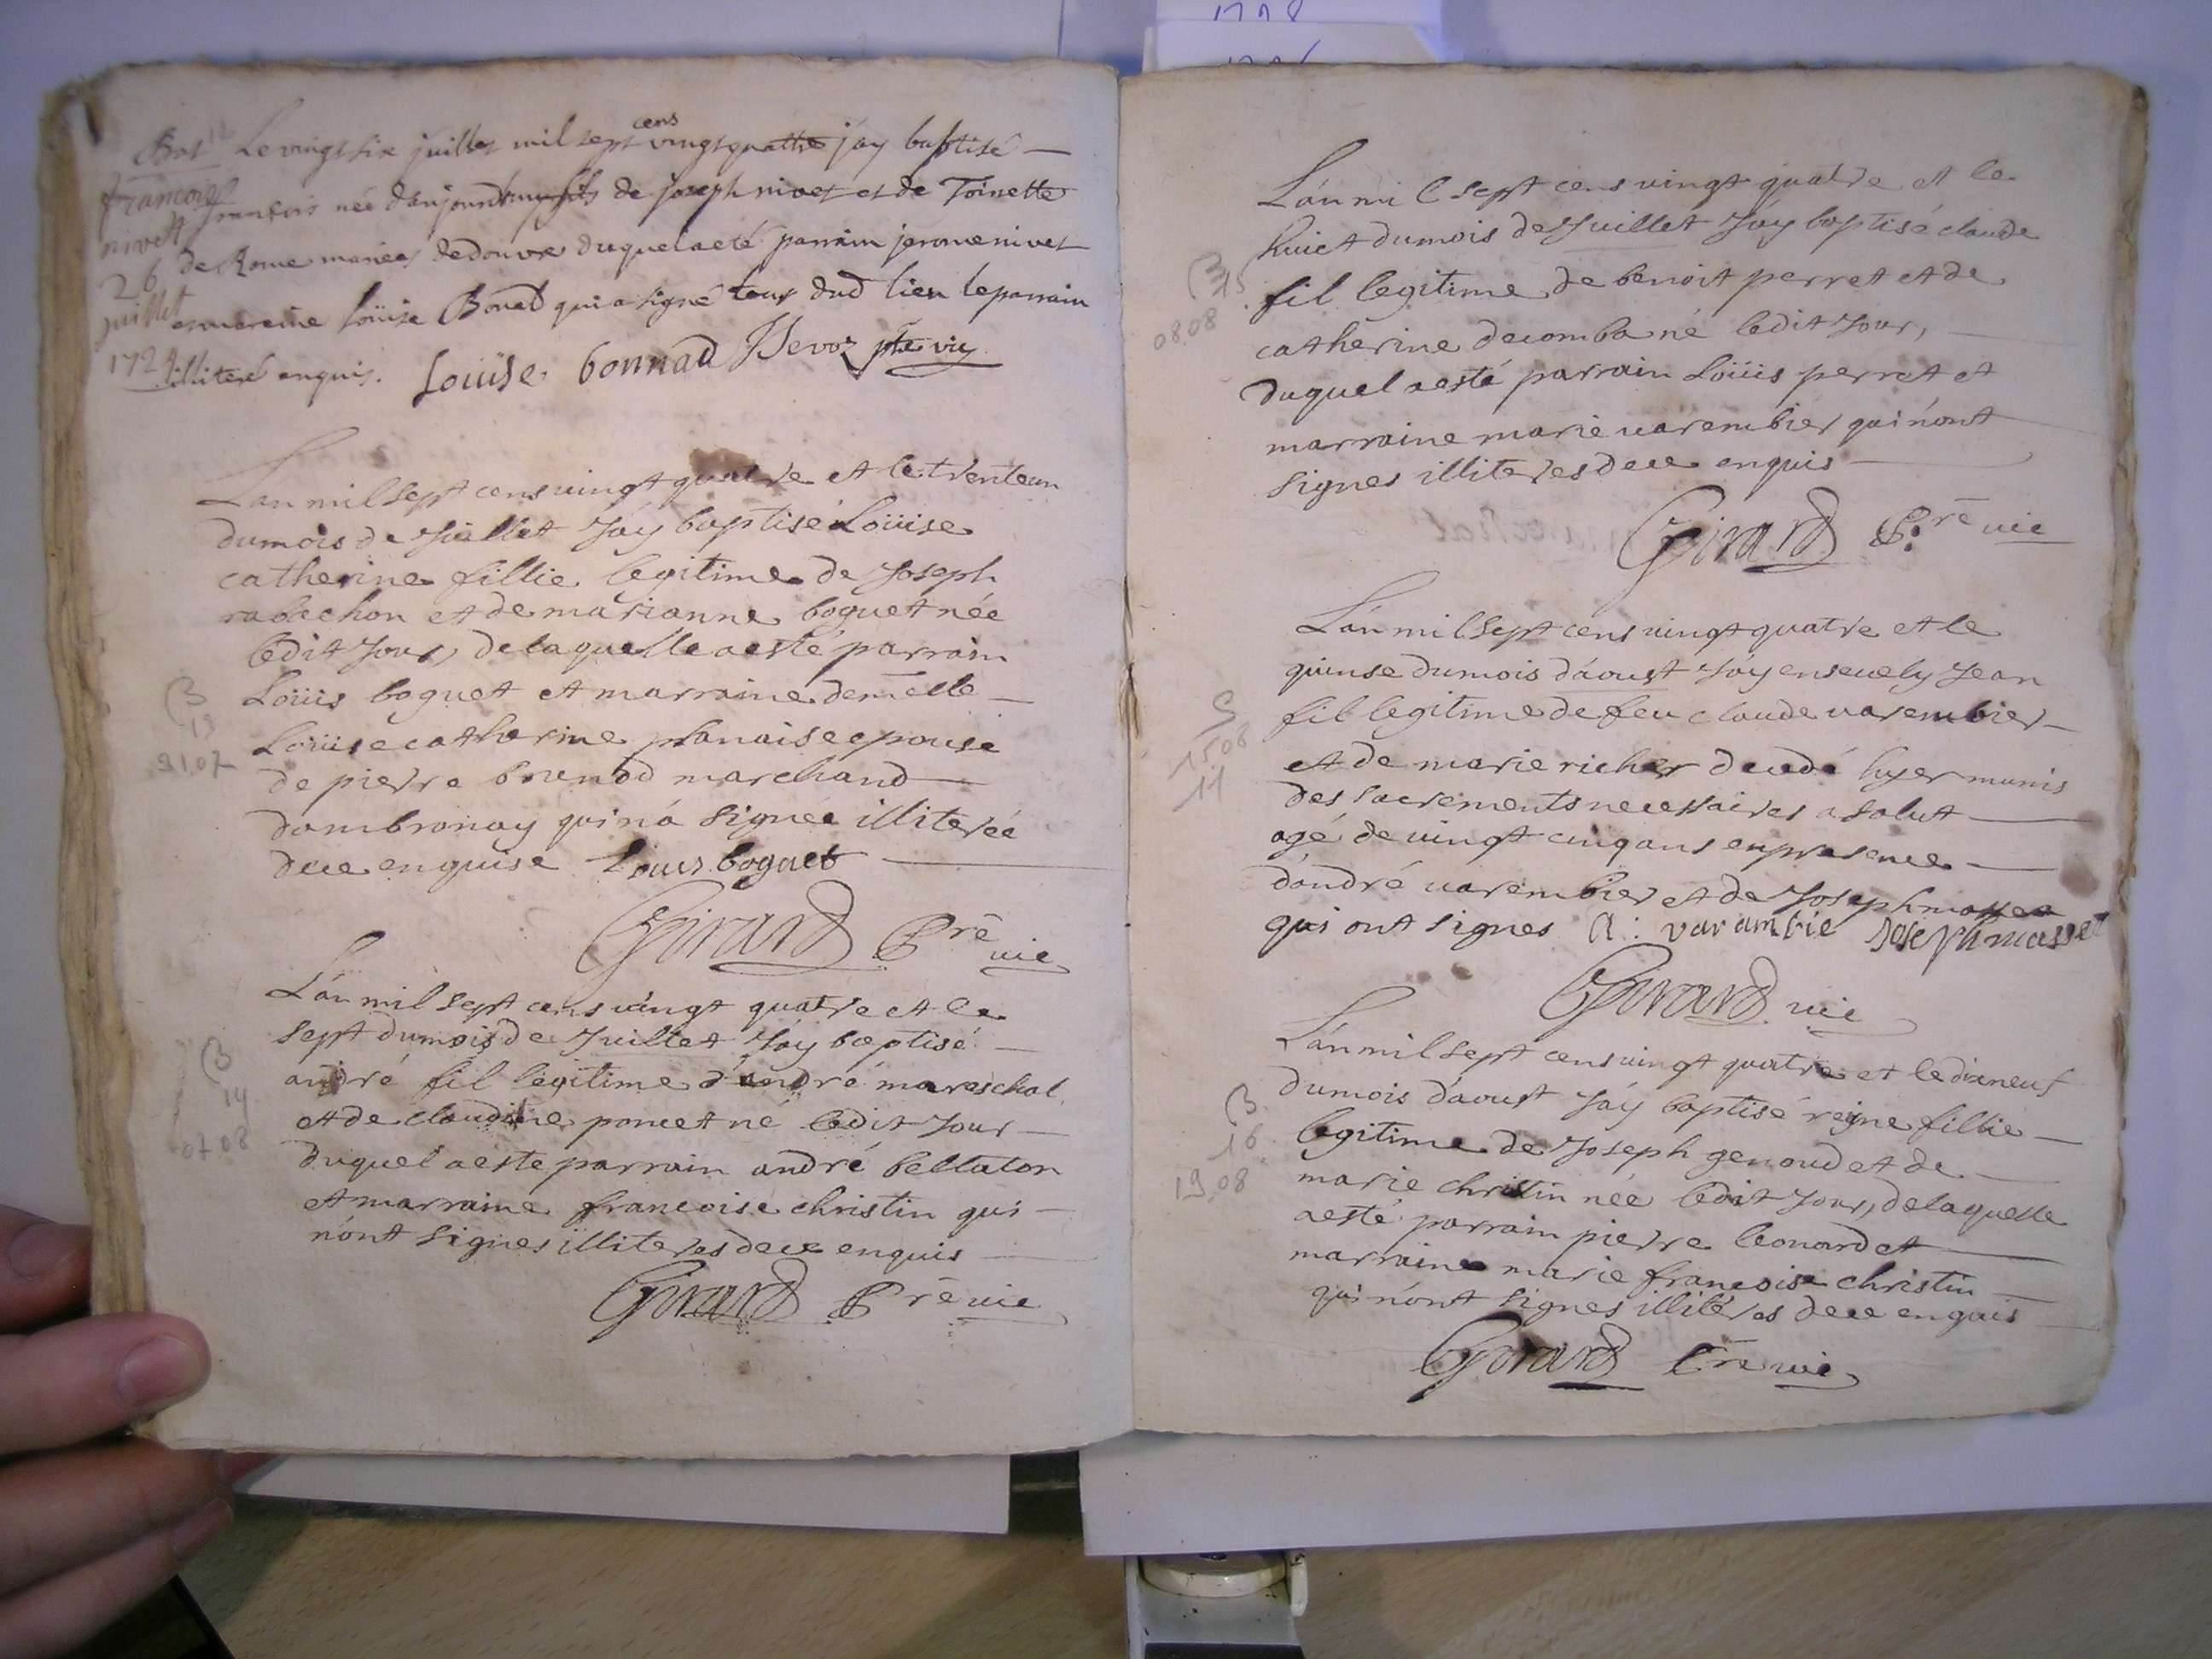 1728
Bat 12 Le vingt six juillet mil sept cens vingt quattre jay baptisé
francois nivet 26 juillet 1724
francois née d'aujourdhuy fils de joseph nivet et de Toinette
de Rome mariés de douvre duquel a eté parrain jerome nivet
et mareine Loüise Bonad qui a signé tous dud lieu le parrain
illiteré enquis. Loüise bonnad Devoz ptre vic
Lan mil sept cens vingt quatre et le trenteun
du mois de Juillet Jáy baptisé Loüise
catherine fillie legitime de Joseph
rabachon et de marianne boguet née
ledit Jour, de laquelle a esté parrain
Loüis boguet et marraine demelle
B
13
31.07
Loüise catherine phanaise epouse
de pierre brunod marchand
dambronay qui ná signée illiterée
de ce enquise Louis boguet
Girard Pre vic
Lán mil sept cens vingt quatre et le
sept du mois de Juillet Jáy baptisé
B
14
07.08
andré fil legitime d'andré mareschal
et de claudine poncet né ledit Jour
duquel a este parrain andré bellaton
et marraine francoise christin qui
nónt signes illiteres de ce enquis
Girard Pre vic
Lán mil sept cens vingt quatre et le
huict du mois de Juillet Jáy baptisé claude
B 15
08.08
fil legitime de benoit perret et de
catherine decomba né ledit Jour,
duquel a esté parrain Loüis perret et
marraine marie varembier qui nónt
signes illiteres de ce enquis
Girard Pre vic
Lán mil sept cens vingt quatre et le
quinse du mois dáoust Jáy ensevely Jean
S
15.08
11
fil legitime de feu claude varembier
et de marie richer decedé hyer munis
des sacrements necessaires a salut
agé de vingt cinq ans en presence
dándré varembier et de Joseph masset
qui ont signes A : varambie Joseph masset
Girard vic
Lán mil sept cens vingt quatre et le dixneuf
du mois dáoust Jáy baptisé reyne fillie
B
16
19.08
legitime de Joseph genoud et de
marie christin née ledit Jour, de laquelle
a esté parrain pierre leonard et
marraine marie francoise christin
qui nónt signes illitéres de ce enquis
Girard Pre vic